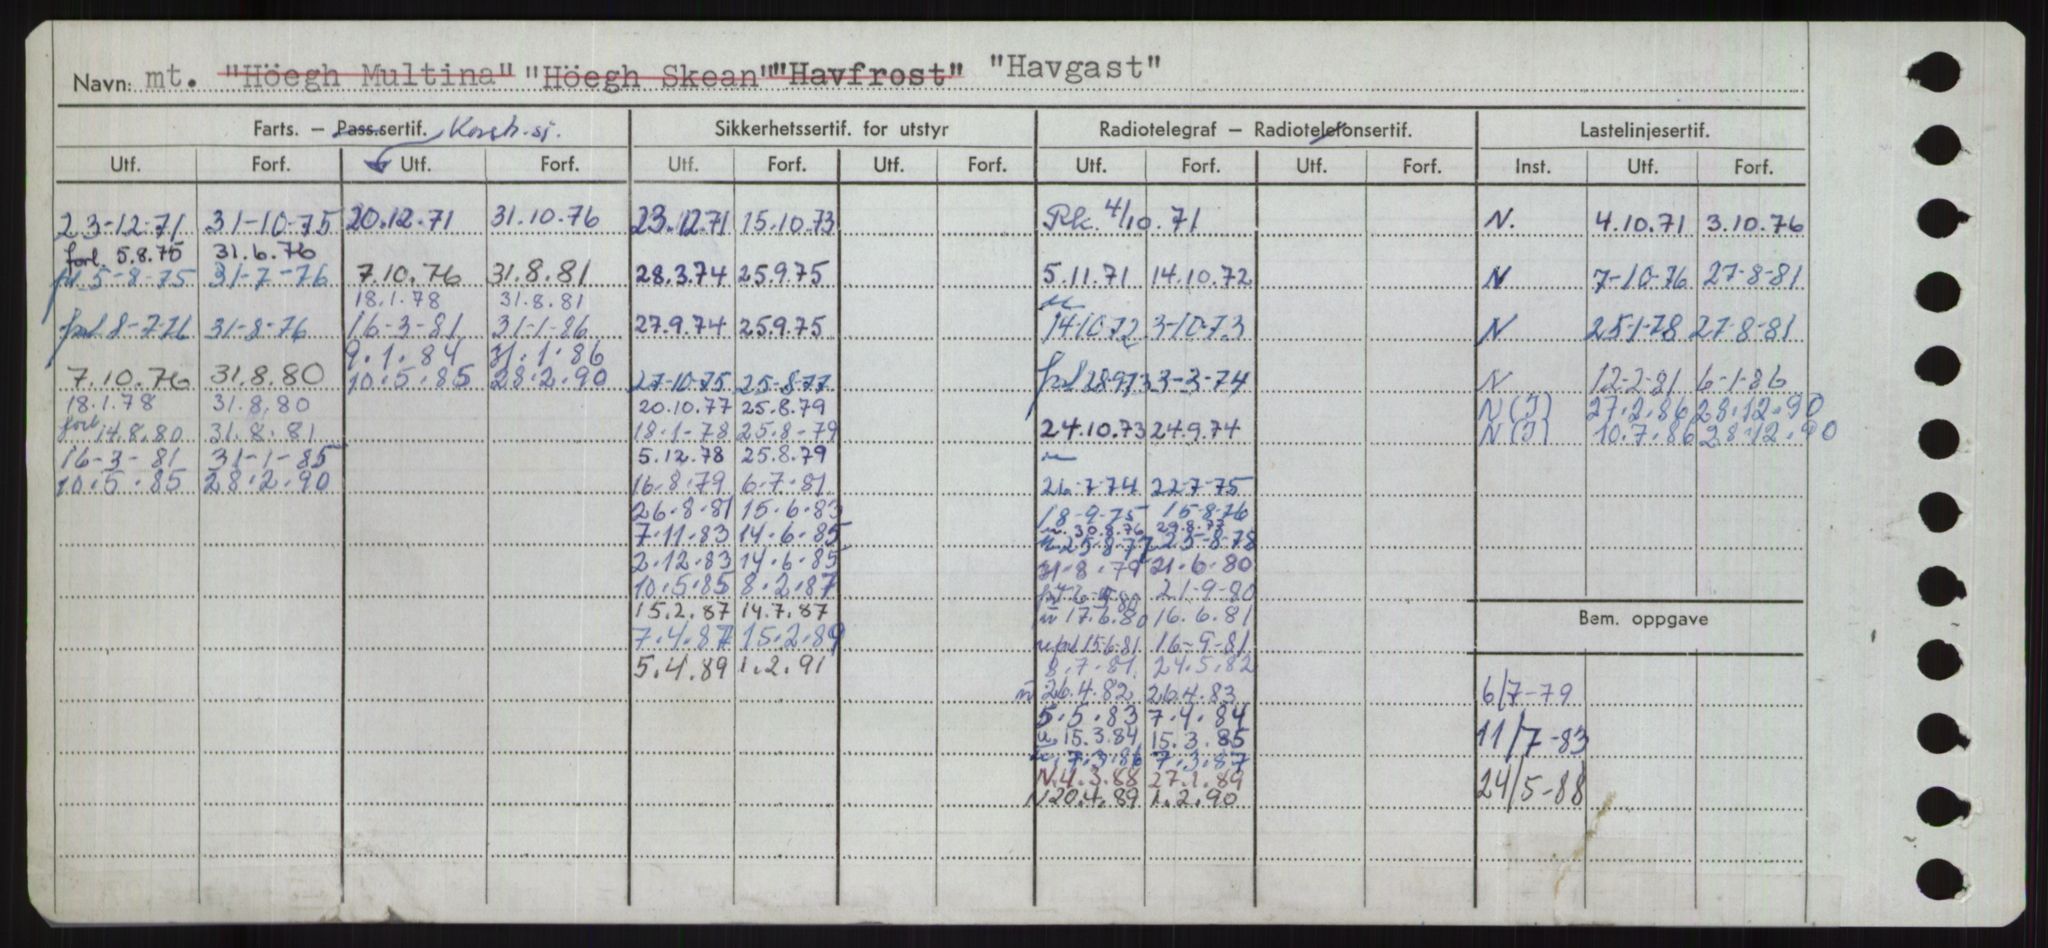 Navn: mt. "Höegh Multina" "Höegh Skean" "Havfrost" "Havgast"
Farts. – Pass.sertif. Konstr.sj. Sikkerhetssertif. for utstyr Radiotelegraf – Radiotelefonsertif. Lastelinjesertif.
Utf. Forf. Utf. Forf. Utf. Forf. Utf. Forf. Utf. Forf. Utf. Forf. Inst. Utf. Forf.
23-12-71 31-10-75 20.12.71 31.10.76 23.12.71 15.10.73 Rk. 4/10.71 N. 4.10.71 3.10.76
forl. 5.8.75 31.6.76
frl 5-8-75 31-7-76 7.10.76 31.8.81 28.3.74 25.9.75 5.11.71 14.10.72 N 7-10-76 27-8-81
18.1.78 31.8.81
frl 8-7-76 31-8-76 16-3-81 31-1-86 27.9.74 25.9.75 14.10.72 3-10-73 N 25-1-78 27-8-81
9.1.84 31.1.86
7.10.76 31.8.80 10.5.85 28.2.90 27-10-75 25-8-77 frl 28.9.73 3-3-74 N 12-2-81 6-1-86
18.1.78 31.8.80 20.10.77 25.8.79 N(I) 27.2.86 28.12.90
forl 14.8.80 31.8.81 18-1-78 25-8-79 24.10.73 24.9.74 N(I) 10.7.86 28.12.90
16-3-81 31-1-85 5.12.78 25.8.79
10.5.85 28.2.90 16.8.79 6.7.81 26-7-74 22-7-75
26.8.81 15.6.83 18-9-75 15-8-76
7.11.83 14.6.85 n. 30.8.76 29.8.77
n 25.8.77 25-8-78
2.12.83 14.6.85 31.8.79 21.6.80
10.5.85 8.2.87 21-9-80
15.2.87 14.7.87 n 17.6.80 16.6.81
Bem. oppgave
7.4.87 15.2.89 n frl 15.6.81 16-9-81
5.4.89 1.2.91 8.7.81 24.5.82
n 26.4.82 26.4.83 6/7-79
5.5.83 7.4.84
n. 15.3.84 15.3.85 11/7-83
n. 7.3.86 7.3.87
N. 4.3.88 27.1.89
N 20.4.89 1.2.90 24/5-88